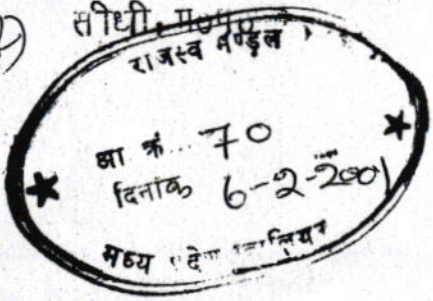 सीधी, म०प्र०
राजस्व मण्डल
आ क्रं... 70
दिनांक 6-2-2001
मध्य प्रदेश ग्वालियर